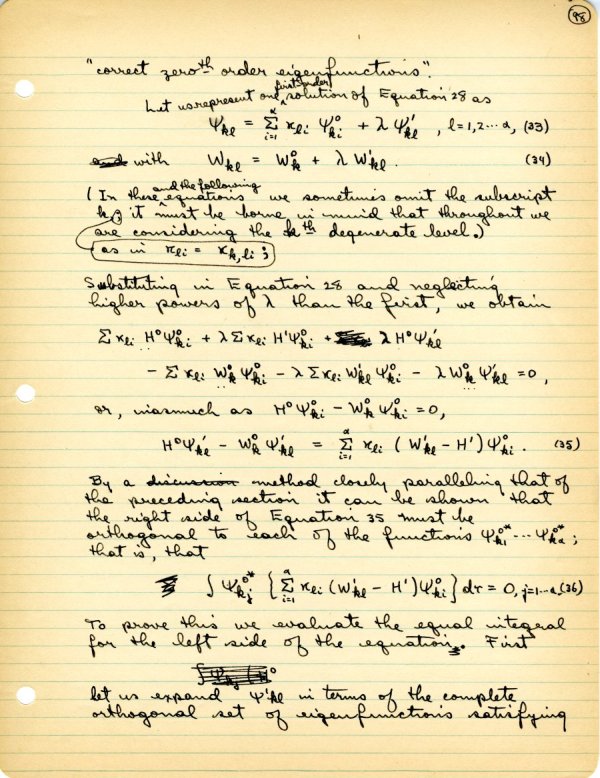 98
"correct zeroth order eigenfunctions".
Let us represent one first-order solution of Equation 28 as
Ψkl = Σ(i=1 to α) κli Ψ⁰ki + λ Ψ′kl , l = 1, 2 ··· α, (33)
and with Wkl = W⁰k + λ W′kl . (34)
(In these and the following equations we sometimes omit the subscript
k, as in κli = κk,li ; it must be borne in mind that throughout we
are considering the kth degenerate level.)
Substituting in Equation 28 and neglecting
higher powers of λ than the first, we obtain
Σ κli H⁰Ψ⁰ki + λ Σ κli H′Ψ⁰ki + λ H⁰Ψ′kl
− Σ κli W⁰k Ψ⁰ki − λ Σ κli W′kl Ψ⁰ki − λ W⁰k Ψ′kl = 0 ,
or, inasmuch as H⁰Ψ⁰ki − W⁰k Ψ⁰ki = 0,
H⁰Ψ′kl − W⁰k Ψ′kl = Σ(i=1 to α) κli ( W′kl − H′ ) Ψ⁰ki . (35)
By a discussion method closely paralleling that of
the preceding section it can be shown that
the right side of Equation 35 must be
orthogonal to each of the functions Ψ⁰*k1 ··· Ψ⁰*kα ;
that is, that
∫ Ψ⁰*kj { Σ(i=1 to α) κli (W′kl − H′) Ψ⁰ki } dτ = 0, j=1···α (36)
To prove this we evaluate the equal integral
for the left side of the equation. First
let us expand Ψ′kl in terms of the complete
orthogonal set of eigenfunctions satisfying